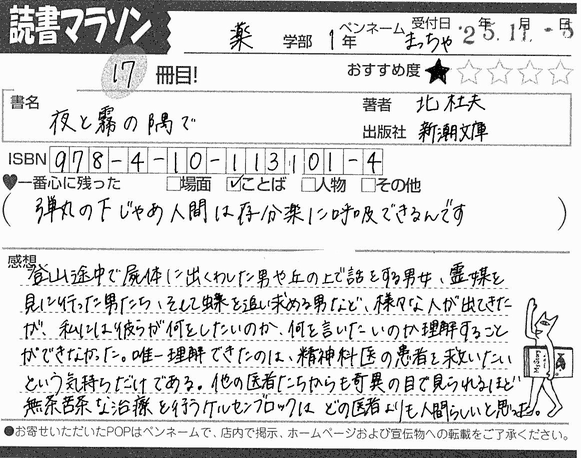 読書マラソン
薬 学部 1年 ペンネーム まっちゃ 受付日 25.11.-5
17 冊目! おすすめ度 ★☆☆☆☆
書名 夜と霧の隅で
著者 北杜夫
出版社 新潮文庫
ISBN 978-4-10-113101-4
♥一番心に残った □場面 ☑ことば □人物 □その他
(弾丸の下じゃあ人間は存分楽に呼吸できるんです)
感想
登山途中で屍体に出くわした男や丘の上で話をする男女、霊媒を
見に行った男たち、そして蝶を追い求める男など、様々な人が出てきた
が、私には彼らが何をしたいのか、何を言いたいのか理解すること
ができなかった。唯一理解できたのは、精神科医の患者を救いたい
という気持ちだけである。他の医者たちからも奇異の目で見られるほど
無茶苦茶な治療を行うケルセンブロックは、どの医者よりも人間らしいと思った。
●お寄せいただいたPOPはペンネームで、店内で掲示、ホームページおよび宣伝物への転載をご了承ください。